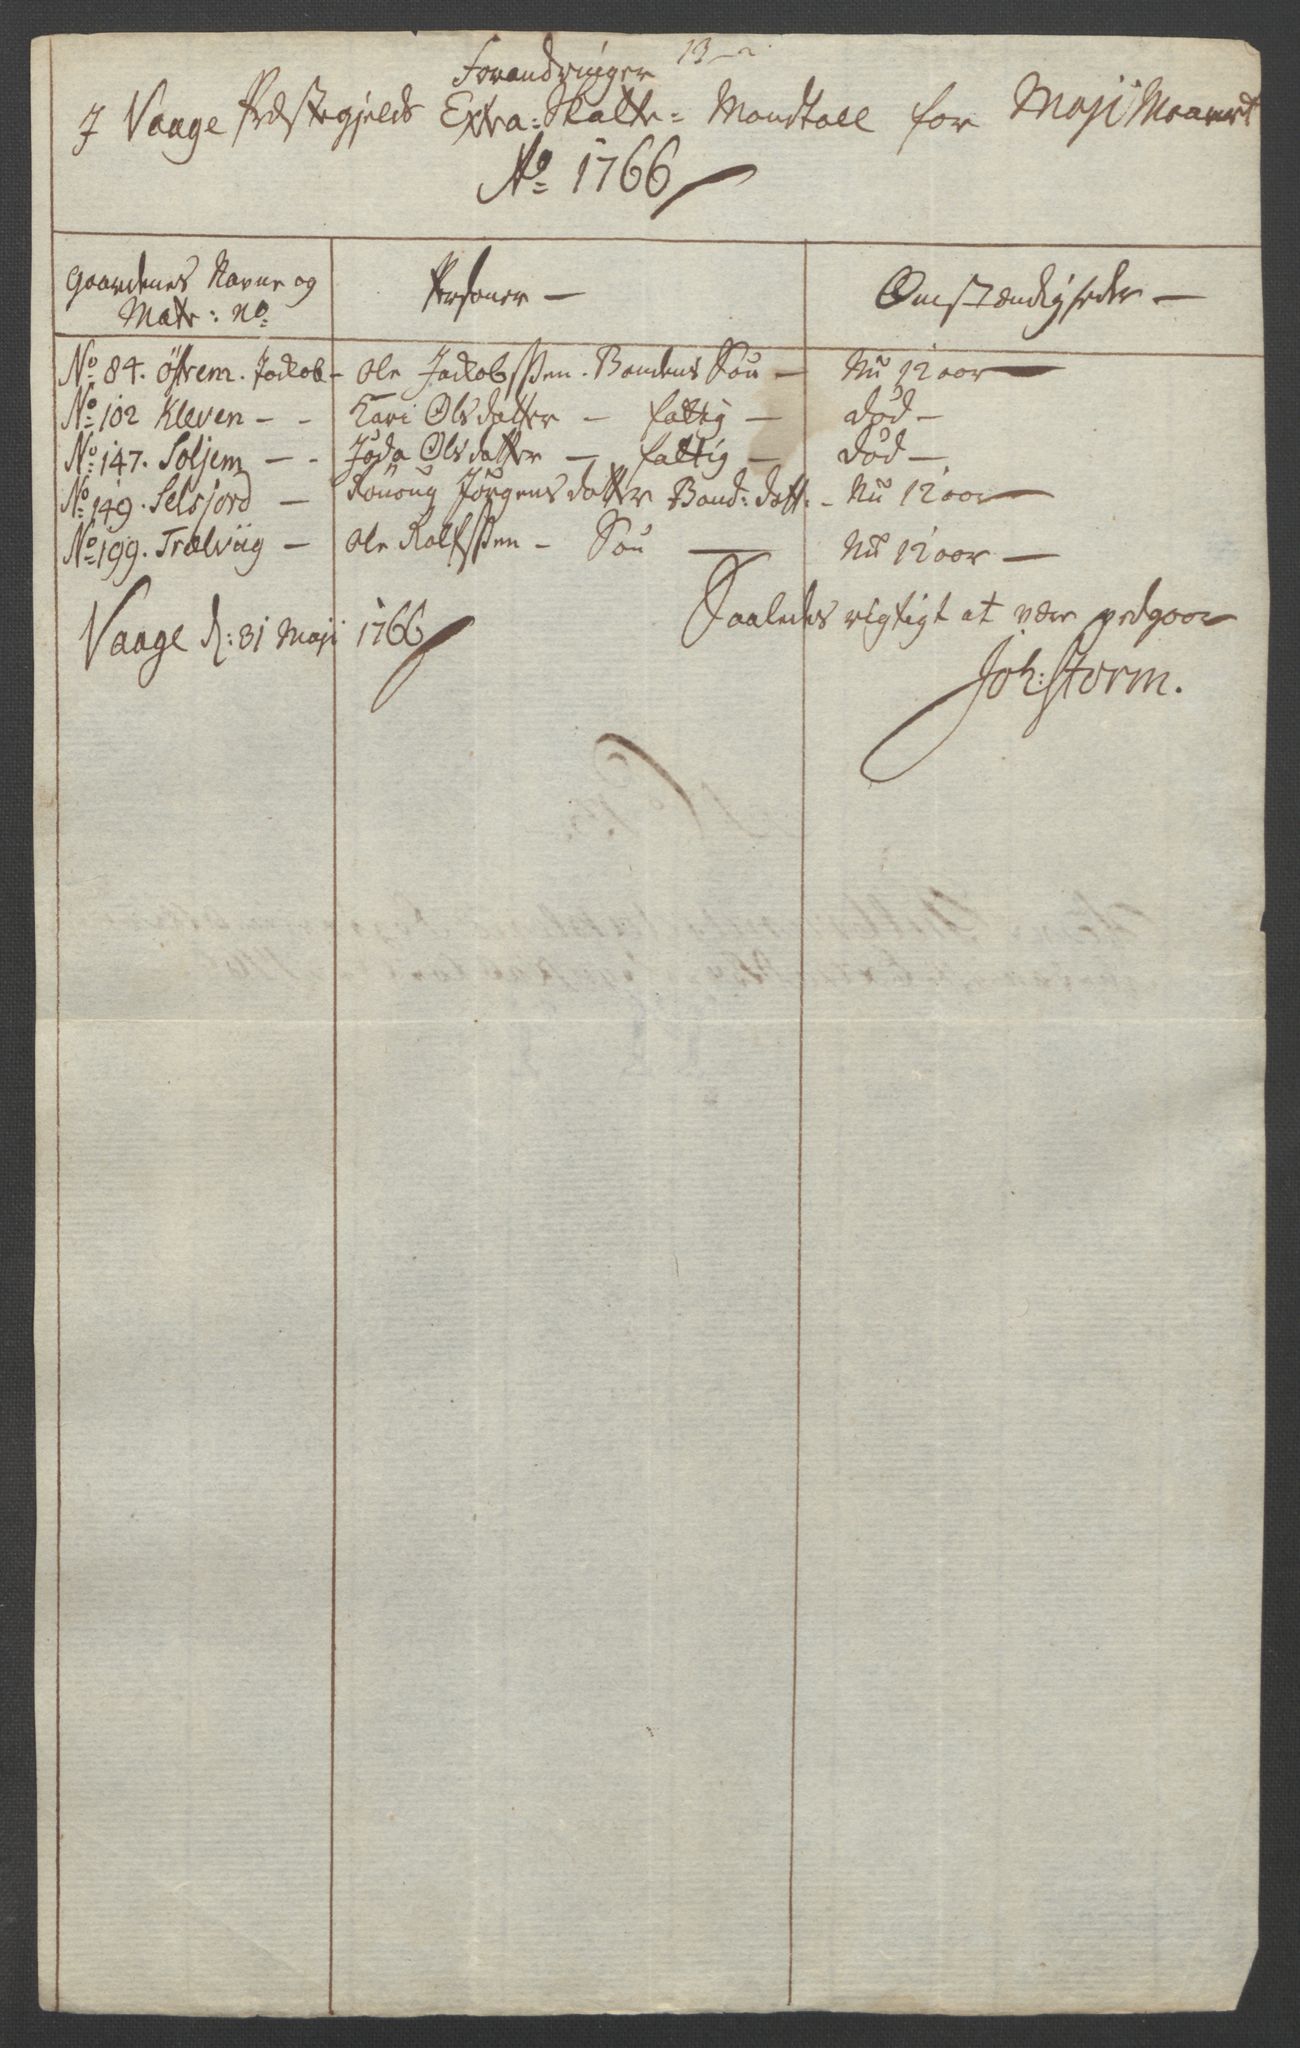 13
Forandringer
I Vaage Præstegjelds Extra-Skatte-Mandtall for Maji Maaned
No 1766
Gaardenes Navne og Matr: No | Persloner — | Omstændigheder —
No 84. Østrem. Jackob — | Ole Jackobssen. Bondens Søn — | Nu 12 aar —
No 102 Kleven - - | Kari Olsdatter — fattig — | død —
No 147. Soljem — - | Olsdatter — fattig — | død —
No 149. Selsjord — | Rønnoug Jørgensdatter Bond: datt. - | Nu 12 aar —
No 199. Trælviig — | Ole Rolfssen - Søn — | Nu 12 aar —
Vaage d: 31 Maji 1766 Saaledes rigtigt at være vedgaar
Joh: Storm.